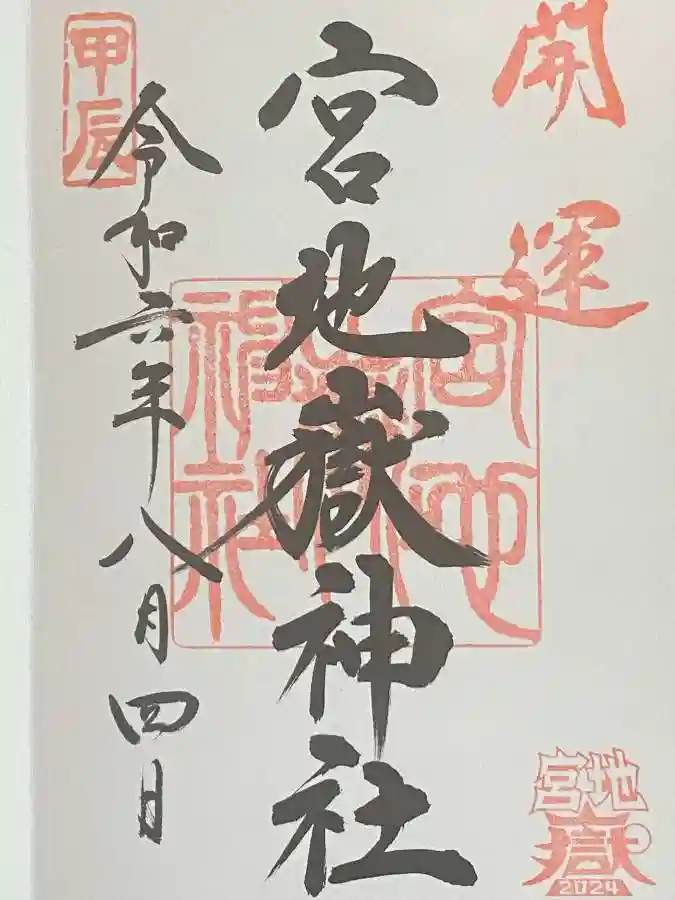 開運
宮地嶽神社
宮地嶽神社
令和六年八月四日
甲辰
宮地
嶽
2024